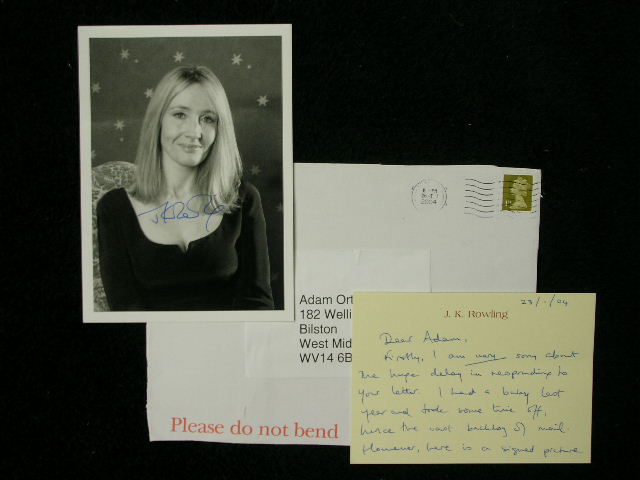 JKRowling
6 PM
2004
1st
Adam Ort
182 Welli
Bilston
West Mid
WV14 6B
Please do not bend
23/1/04
J. K. Rowling
Dear Adam,
Firstly, I am very sorry about
the huge delay in responding to
your letter. I had a baby last
year and took some time off,
hence the vast backlog of mail.
However, here is a signed picture